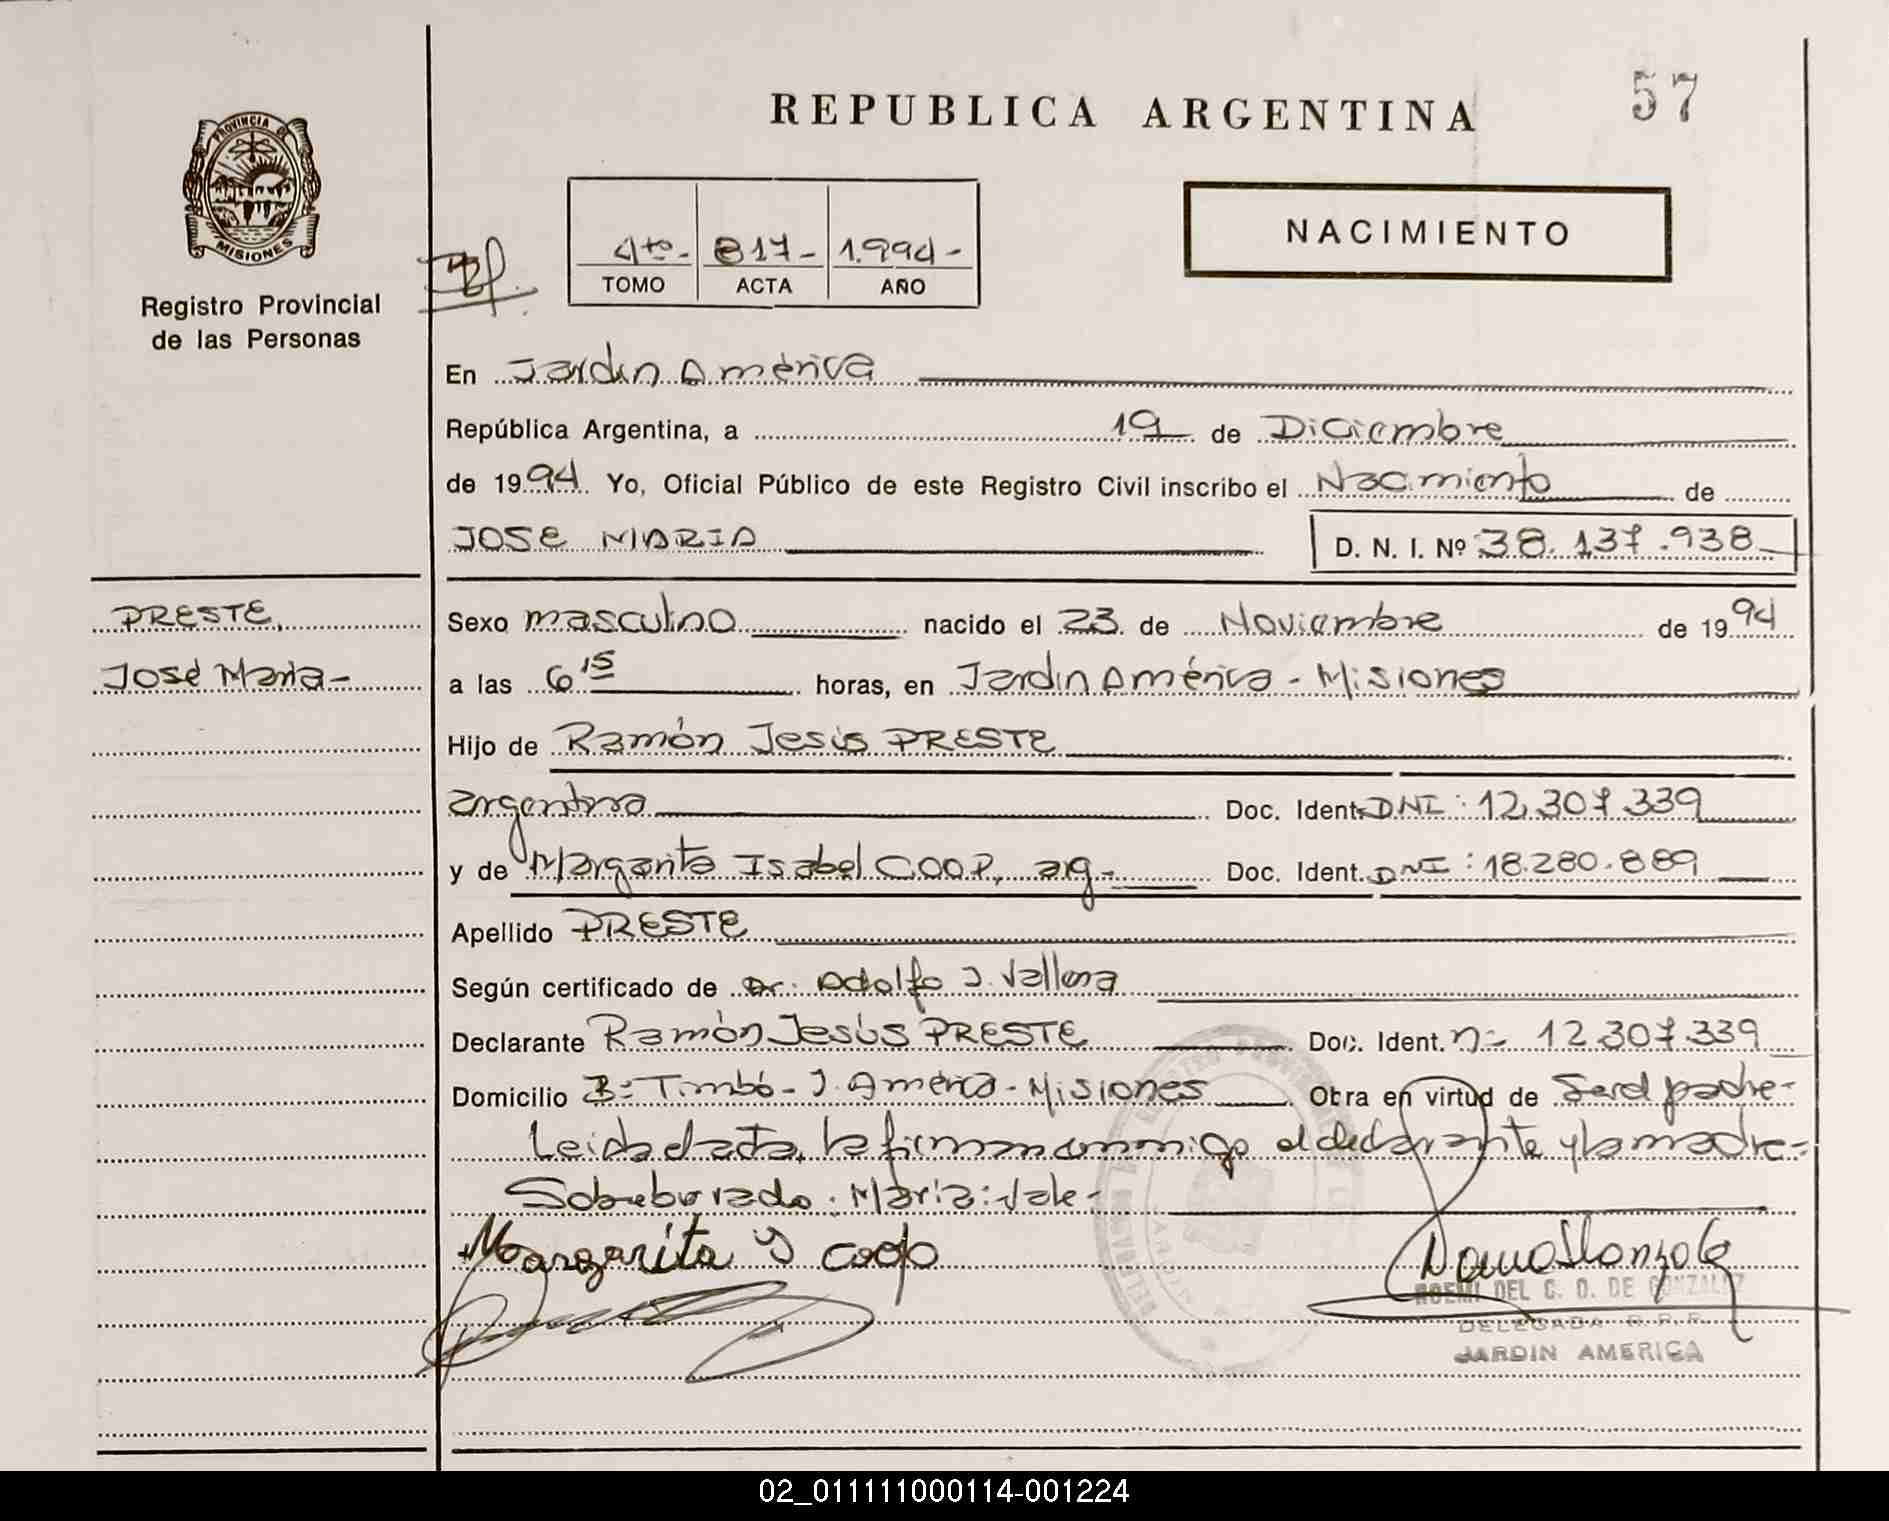 REPUBLICA ARGENTINA
57
PROVINCIA DE
MISIONES
Registro Provincial
de las Personas
4to- 817- 1.994-
TOMO ACTA AÑO
NACIMIENTO
En Jardin América
República Argentina, a 19 de Diciembre
de 1994 Yo, Oficial Público de este Registro Civil inscribo el Nacimiento de
JOSE MARIA D. N. I. Nº 38.137.938
PRESTE,
José Maria-
Sexo masculino nacido el 23 de Noviembre de 1994
a las 6 15 horas, en Jardin América - Misiones
Hijo de Ramón Jesús PRESTE
argentina Doc. Ident. DNI: 12.307.339
y de Margarita Isabel COOP, arg- Doc. Ident. DNI: 18.280.889
Apellido PRESTE
Según certificado de Dr. Adolfo J.
Declarante Ramón Jesús PRESTE Doc. Ident. n= 12.307.339
Domicilio B= Timbó - J. América - Misiones Otra en virtud de Ser el padre-
Leida el acta, la firman conmigo el declarante y la madre-
Sobreborrado: Maria: Vale-
Margarita Y coop
NOEMI DEL C. O. DE GONZALEZ
DELEGADA R.P.P.
JARDIN AMERICA
02_011111000114-001224